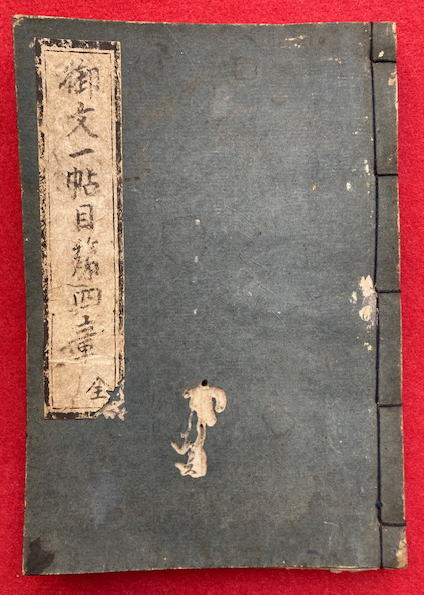 御文一帖目第四章
全